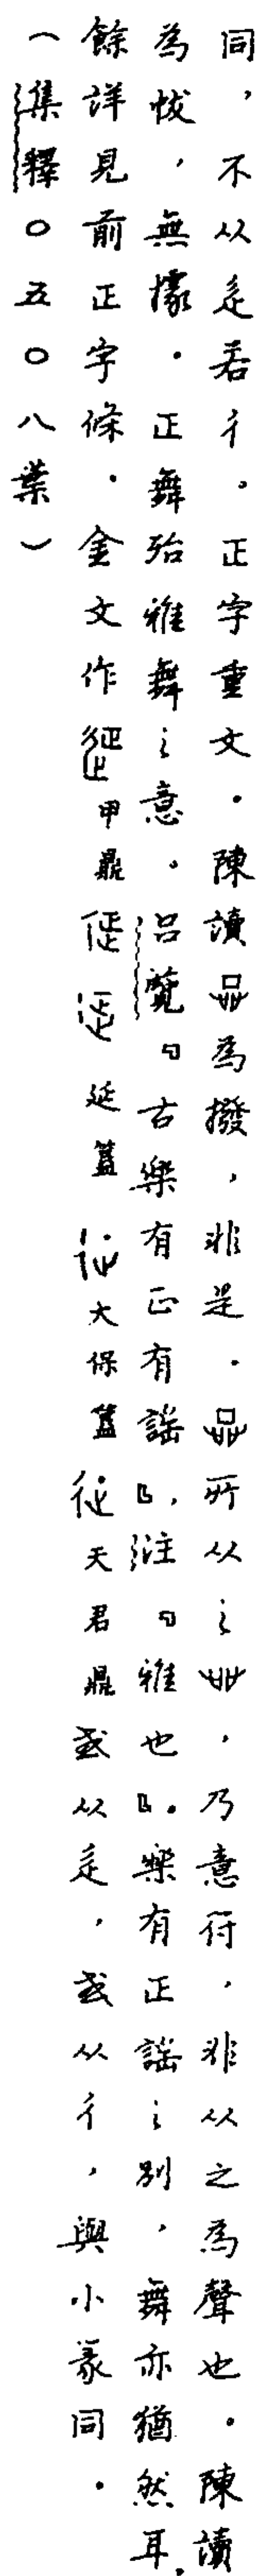 同，不从辵若彳。正字重文．陳讀𣥠為撥，非是．𣥠所从之癶，乃意符，非从之為聲也．陳讀
為怶，無據．正舞殆雅舞之意。呂覽「古樂有正有謠」，注「雅也」。樂有正謠之別，舞亦猶然耳．
餘詳見前正字條．金文作 甲鼎 延簋 大保簋 天君鼎或从辵，或从彳，與小篆同．
（集釋〇五〇八葉）